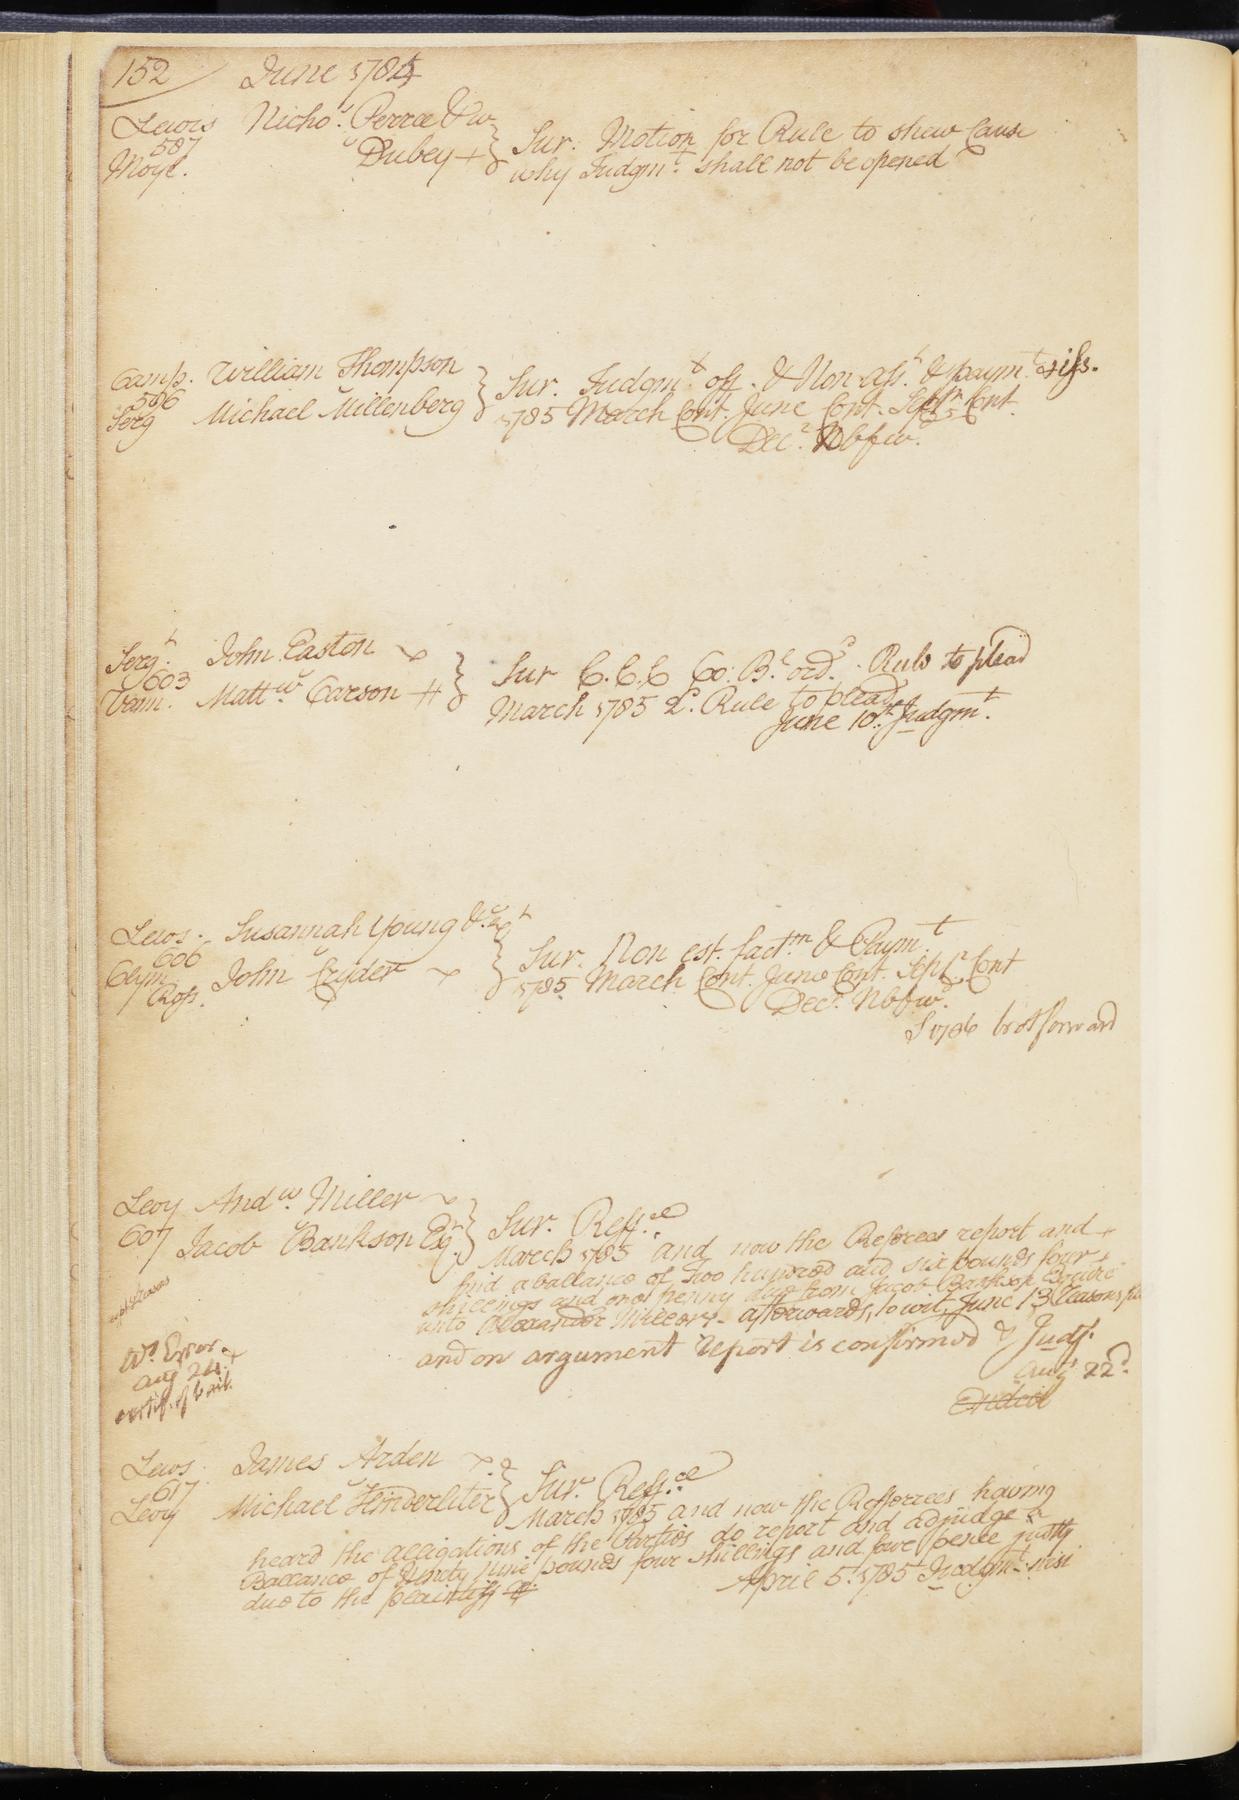 152 June 1784
Lewis Nicho.s Perree & w
587 Dubey + Sur. Motion for Rule to shew Cause
Moyl. why Judgm.t shall not be opened
Camp. William Thompson
586 Sur. Judgm.t off. & Non ass.t & paym.t riss.
Serg Michael Millenberg 1785 March Cont. June Cont. Sept.r Cont.
Dec.r Nbfw.
Serg.t John Easton
603 Sur C.C.C Co. B.l ord.d. Rule to plead
Vann. Matt.w Carson March 1785 2.d Rule to plead
June 10.th Judgm.t
Lews. Susannah Young &.c
606 Sur. Non est. fact.m & Paym.t
Clym John Cryder 1785 March Cont. June Cont. Sept.r Cont
Ross. Dec.r Nbfw.d
S 1786 brot forward
Levy And.w Miller
607 Jacob Bankson Esq.r Sur. Reff.ce
March 1785 and now the Referees report and
find a ballance of Two hundred and six pounds four
shillings and one penny due from Jacob Bankson Esquire
unto Alexander Miller. afterwards, to wit, June 13 Reasons
and on argument report is confirmed & Judg.
Aug.t 22.d
Ended
W.t Error
aug 24.
certif. of bail.
Lews. James Arden
617 Sur. Reff.ce
Levy Michael Hinderliter March 1785 and now the Refferees having
heard the alligations of the Parties do report and adjudge a
Ballance of Ninety Nine pounds four shillings and four pence justly
due to the plaintiff April 5. 1785 Judgm.t nisi